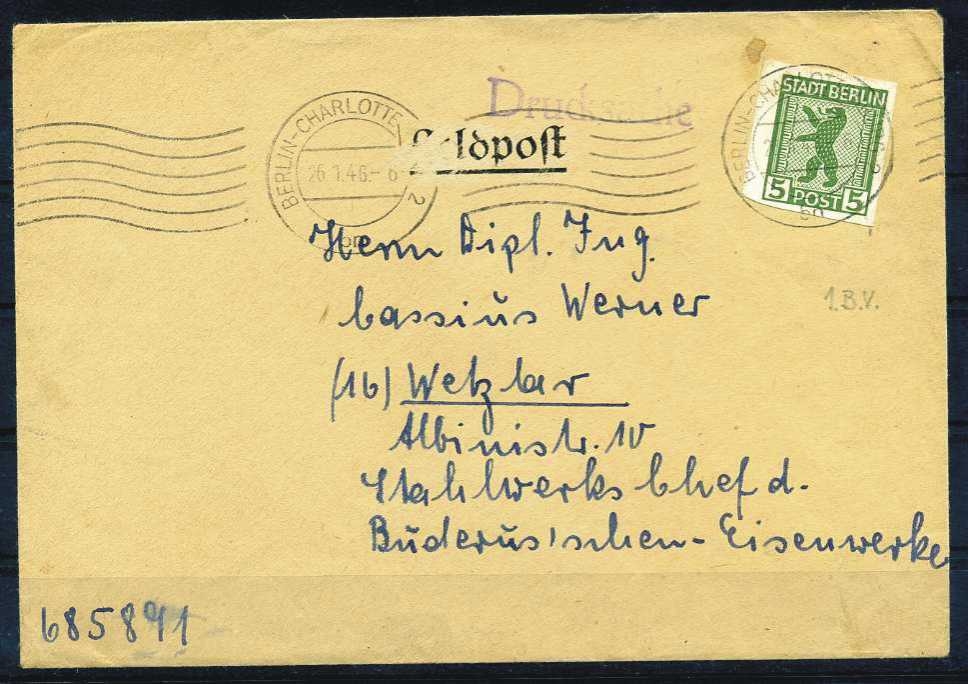 Drucksache
Feldpost
BERLIN-CHARLOTTE
26.1.46.- 6
2
STADT BERLIN
5 POST 5
BERLIN-CHARLOTTE
2
Herrn Dipl. Ing.
Cassius Werner
1.B.V.
(16) Wetzlar
Albinistr. 10
Stahlwerks Chef d.
Buderus'schen-Eisenwerke
685891